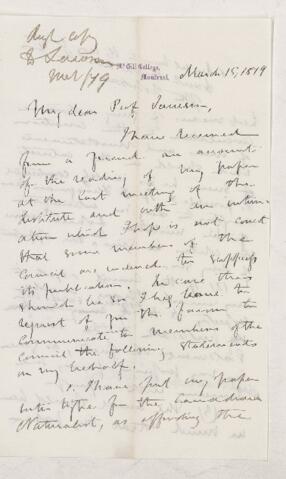 McGill College,
Montreal,
March 15, 1879
My dear Prof
I have received
from a friend an account
of the reading of my paper
at the last meeting of the
Institute and with an intim-
ation which I hope is not correct
that some members of the
Council are inclined to suppress
its publication. In case this
should be so I beg leave to
request of you the favour to
communicate to members of the
Council the following statements
on my behalf.
1. I have put my paper
into type for the Canadian
Naturalist, as affording the